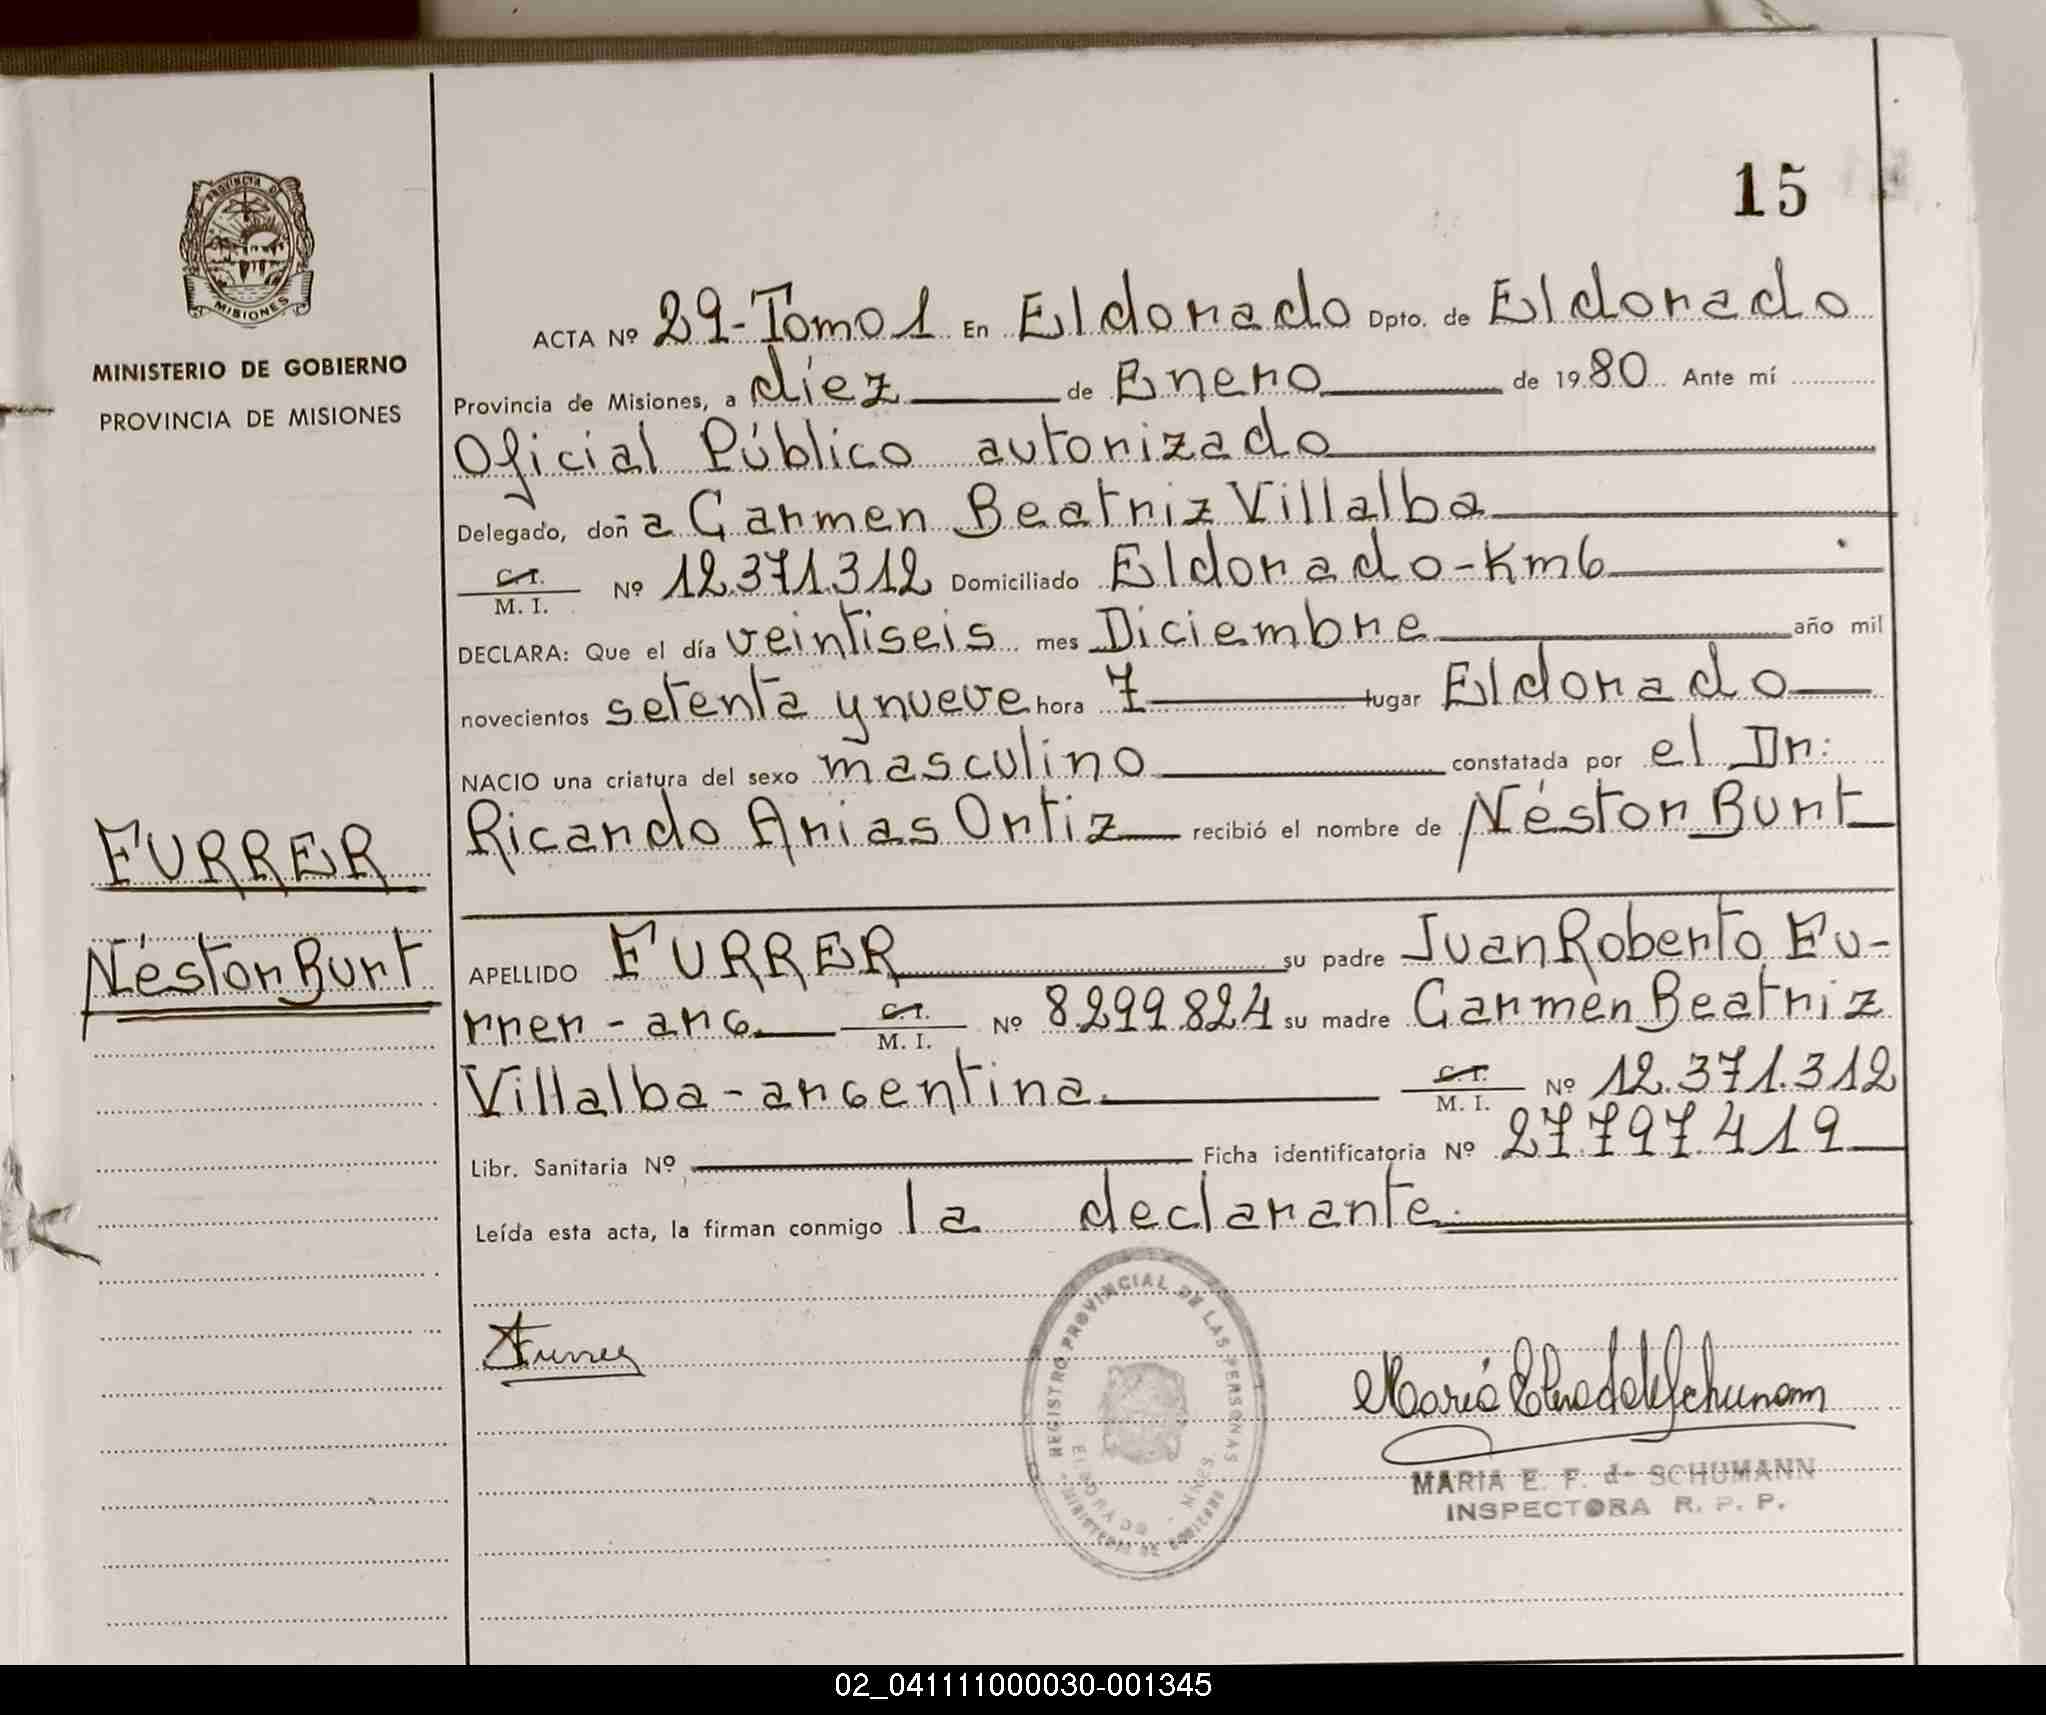 PROVINCIA DE
MISIONES
MINISTERIO DE GOBIERNO
PROVINCIA DE MISIONES
FURRER
Néstor Burt
15
ACTA Nº 29-Tomo 1 En Eldorado Dpto. de Eldorado
Provincia de Misiones, a diez de Enero de 1980 Ante mí
Oficial Público autorizado
Delegado, doña Carmen Beatriz Villalba
C.I.
M. I. Nº 12.371.312 Domiciliado Eldorado-Km6
DECLARA: Que el día veintiseis mes Diciembre año mil
novecientos setenta y nueve hora 7 lugar Eldorado
NACIO una criatura del sexo masculino constatada por el Dr:
Ricardo Arias Ortiz recibió el nombre de Néstor Burt
APELLIDO FURRER su padre Juan Roberto Fu-
rrer-arg. C.I. M. I. Nº 8299824 su madre Carmen Beatriz
Villalba-argentina. C.I. M. I. Nº 12.371.312
Libr. Sanitaria Nº Ficha identificatoria Nº 27.797.419
Leída esta acta, la firman conmigo la declarante.
Furrer
REGISTRO PROVINCIAL DE LAS PERSONAS
ELDORADO - MNES.
MINISTERIO DE GOBIERNO
MARIA E. F. de SCHUMANN
INSPECTORA R. P. P.
02_041111000030-001345